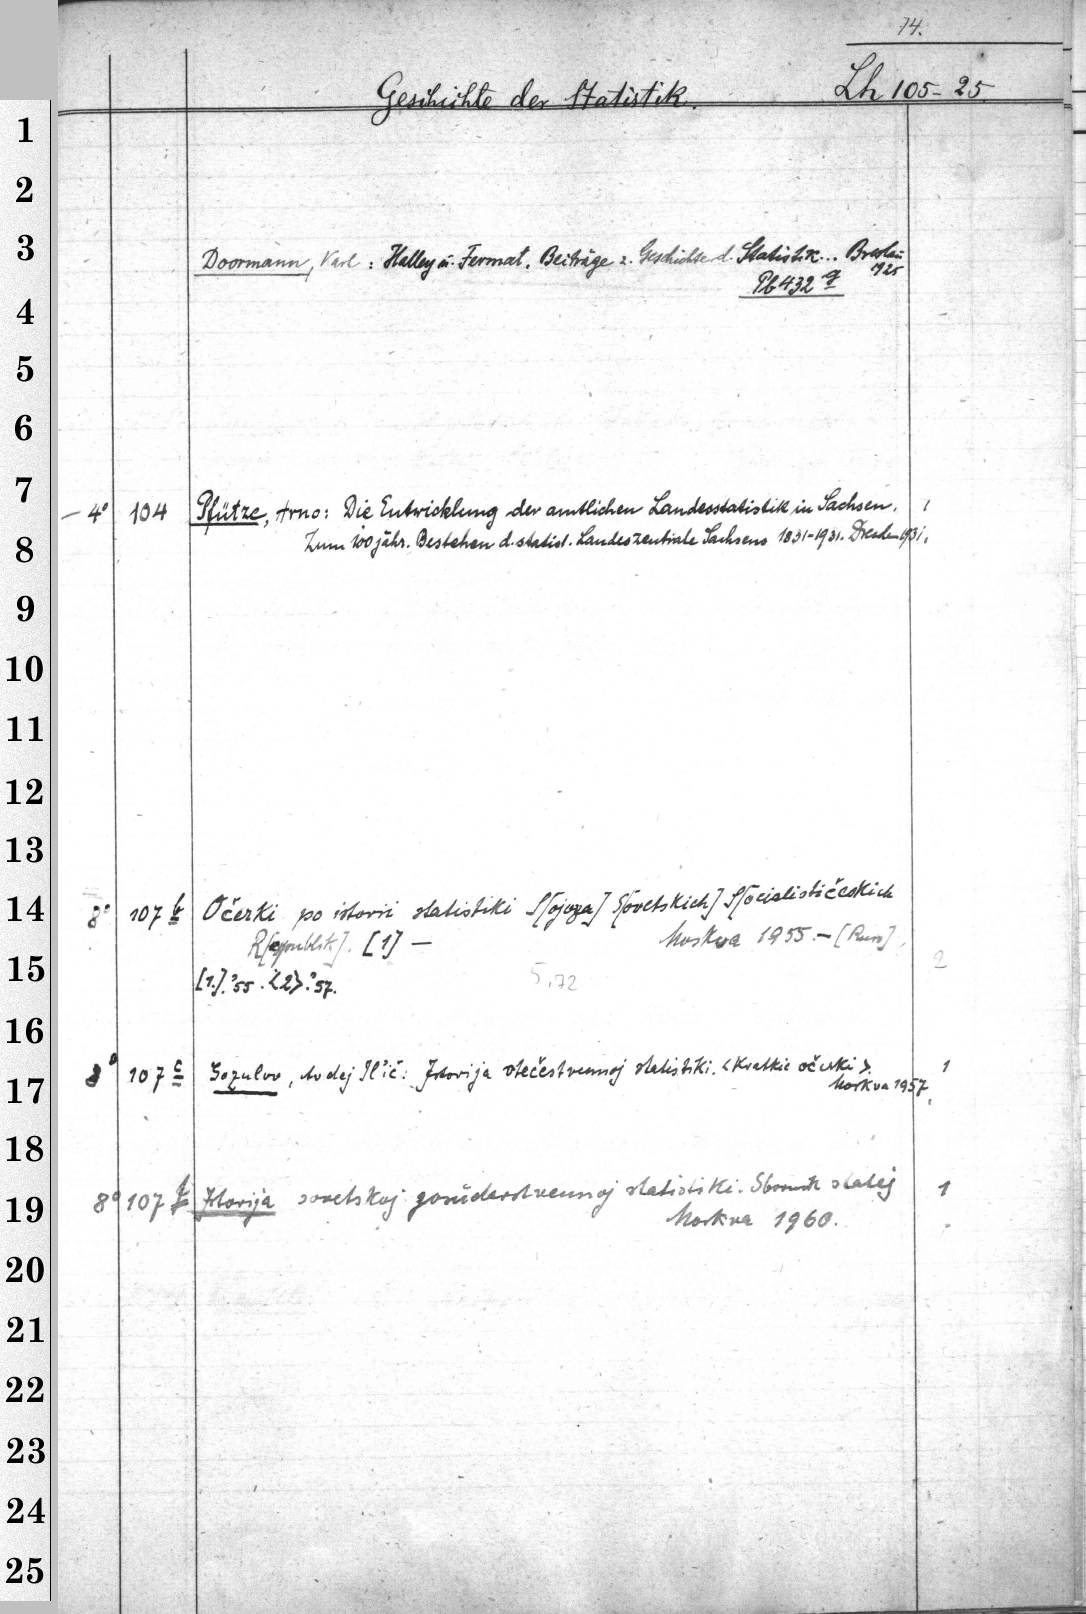 74.
Geschichte der Statistik.
Lh 105-25
1
2
3
Doormann, Karl: Halley u. Fermat. Beiträge z. Geschichte d. Statistik... Breslau
1925
Pb 432 q
4
5
6
7
4° 104 Pfütze, Arno: Die Entwicklung der amtlichen Landesstatistik in Sachsen. 1
8
Zum 100jähr. Bestehen d. statist. Landeszentrale Sachsens 1831-1931. Dresden 1931.
9
10
11
12
13
14
8° 107 b Očerki po istorii statistiki S[ojuza] S[ovetskich] S[ocialističeskich
R[epublik]. [1] — Moskva 1955.— [Russ]
15
2
[1.] '55. <2> '57. 5.72
16
8° 107 c Gozulov, Andej Il'ič: Istorija otečestvennoj statistiki. <Kratkie očerki>. 1
17
Moskva 1957.
18
19
8° 107 f Istorija sovetskoj gosudarstvennoj statistiki. Sbornik statej 1
Moskva 1960.
20
21
22
23
24
25